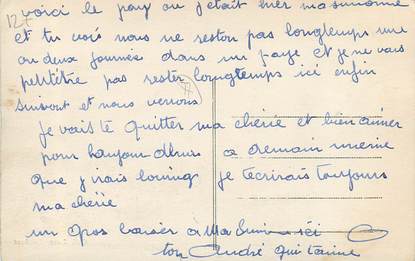 voici le pay ou j'etait hier ma
et tu vois nous ne reston pas longtemps une
ou deux journée dans un paye et je ne vais
petitètre pas rester longtemps ici enfin
suivont et nous verrons
je vais te quitter ma chérie et bien aimer
pour toujour a demain meme
que j'irais loing je t'ecrirais toujours
ma chérie
un gros baiser à Ma
ton André qui t'aime